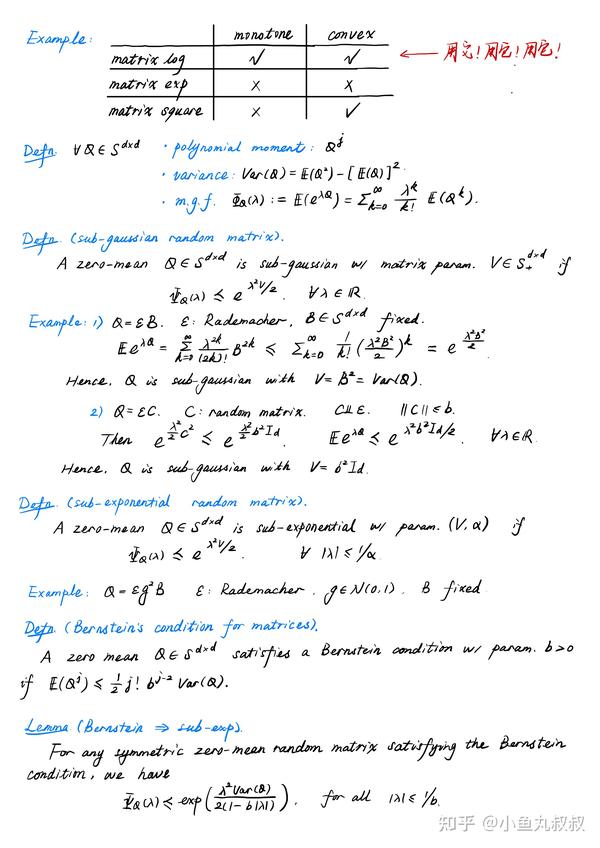 Example: monotone convex
matrix log ✓ ✓ ← 用它！用它！用它！
matrix exp × ×
matrix square × ✓
Defn. ∀ Q ∈ S^{d×d} · polynomial moment: Q^j
· variance: Var(Q) = E(Q²) - [E(Q)]².
· m.g.f. Ψ_Q(λ) := E(e^{λQ}) = Σ_{k=0}^∞ λ^k/k! E(Q^k).
Defn. (sub-gaussian random matrix).
A zero-mean Q ∈ S^{d×d} is sub-gaussian w/ matrix param. V ∈ S_+^{d×d} if
Ψ_Q(λ) ≼ e^{λ²V/2}. ∀ λ ∈ ℝ.
Example: 1) Q = εB. ε: Rademacher, B ∈ S^{d×d} fixed.
E e^{λQ} = Σ_{k=0}^∞ λ^{2k}/(2k)! B^{2k} ≼ Σ_{k=0}^∞ 1/k! (λ²B²/2)^k = e^{λ²B²/2}.
Hence, Q is sub-gaussian with V = B² = Var(Q).
2) Q = εC. C: random matrix. C ⫫ ε. ‖C‖ ≤ b.
Then e^{λ²/2 C²} ≼ e^{λ²/2 b² I_d}. E e^{λQ} ≼ e^{λ²b²I_d/2}. ∀ λ ∈ ℝ.
Hence, Q is sub-gaussian with V = b² I_d.
Defn. (sub-exponential random matrix).
A zero-mean Q ∈ S^{d×d} is sub-exponential w/ param. (V, α) if
Ψ_Q(λ) ≼ e^{λ²V/2}. ∀ |λ| ≤ 1/α.
Example: Q = εg²B ε: Rademacher, g ∈ N(0,1), B fixed.
Defn. (Bernstein's condition for matrices).
A zero mean Q ∈ S^{d×d} satisfies a Bernstein condition w/ param. b>0
if E(Q^j) ≼ 1/2 j! b^{j-2} Var(Q).
Lemma (Bernstein ⇒ sub-exp).
For any symmetric zero-mean random matrix satisfying the Bernstein
condition, we have
Ψ_Q(λ) ≼ exp(λ²Var(Q)/2(1-b|λ|)). for all |λ| ≤ 1/b.
知乎 @小鱼丸叔叔